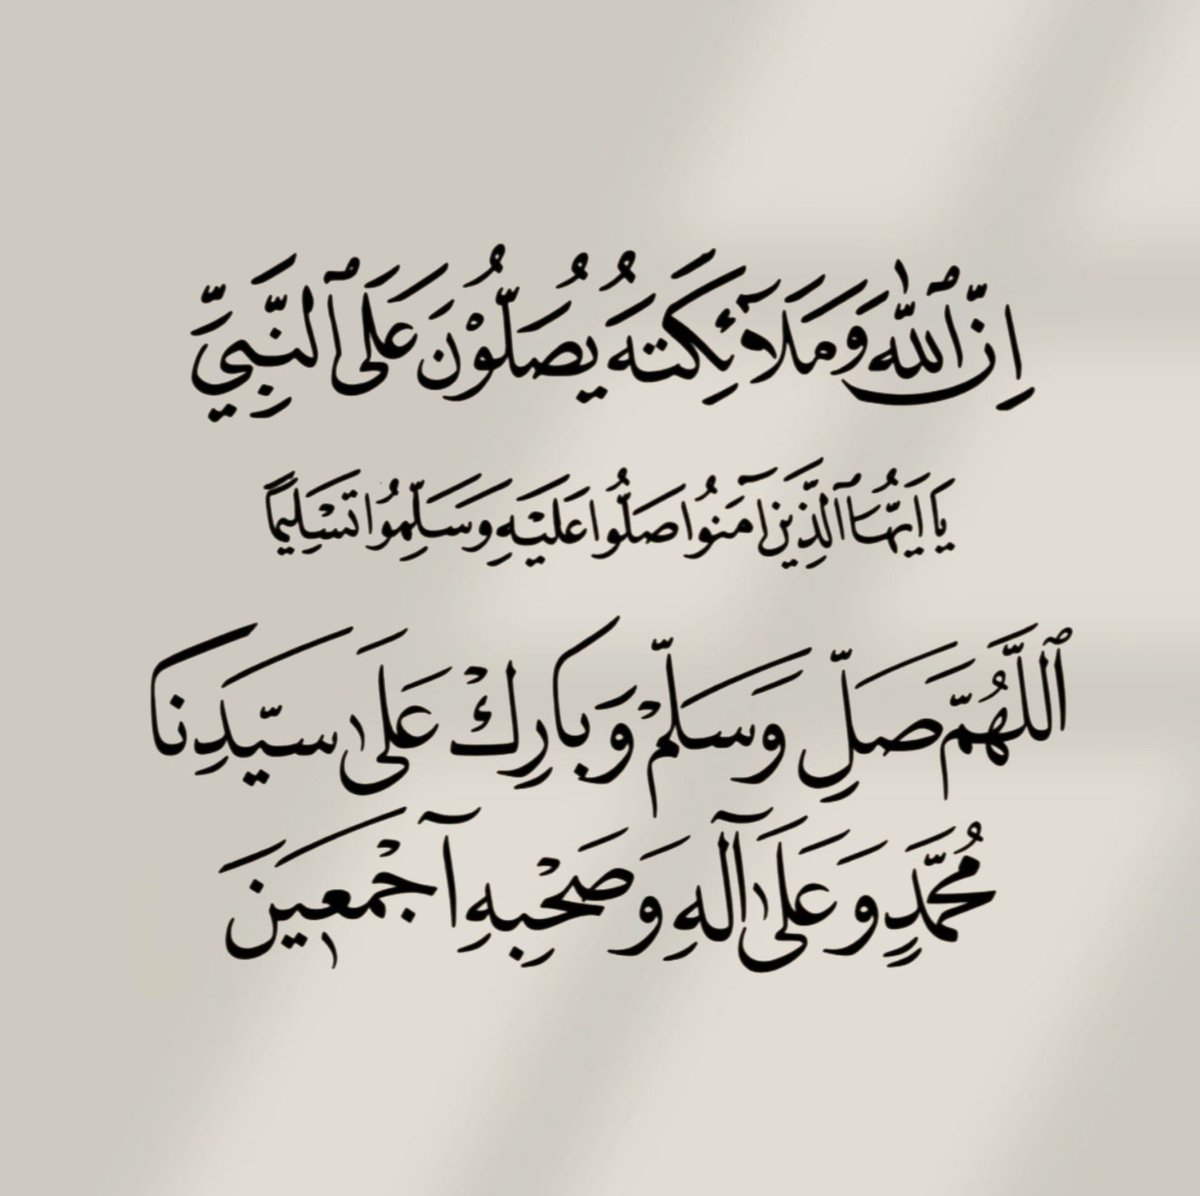 اِنَّ ٱللّٰهَ وَمَلَآئِكَتَهُ يُصَلُّوْنَ عَلَى ٱلنَّبِيِّ
يَا اَيُّهَا ٱلَّذِيْنَ آمَنُوا صَلُّوا عَلَيْهِ وَسَلِّمُوا تَسْلِيمًا
ٱللَّهُمَّ صَلِّ وَسَلِّمْ وَبَارِكْ عَلَى سَيِّدِنَا
مُحَمَّدٍ وَعَلَى آلِهِ وَصَحْبِهِ آجْمَعِينَ